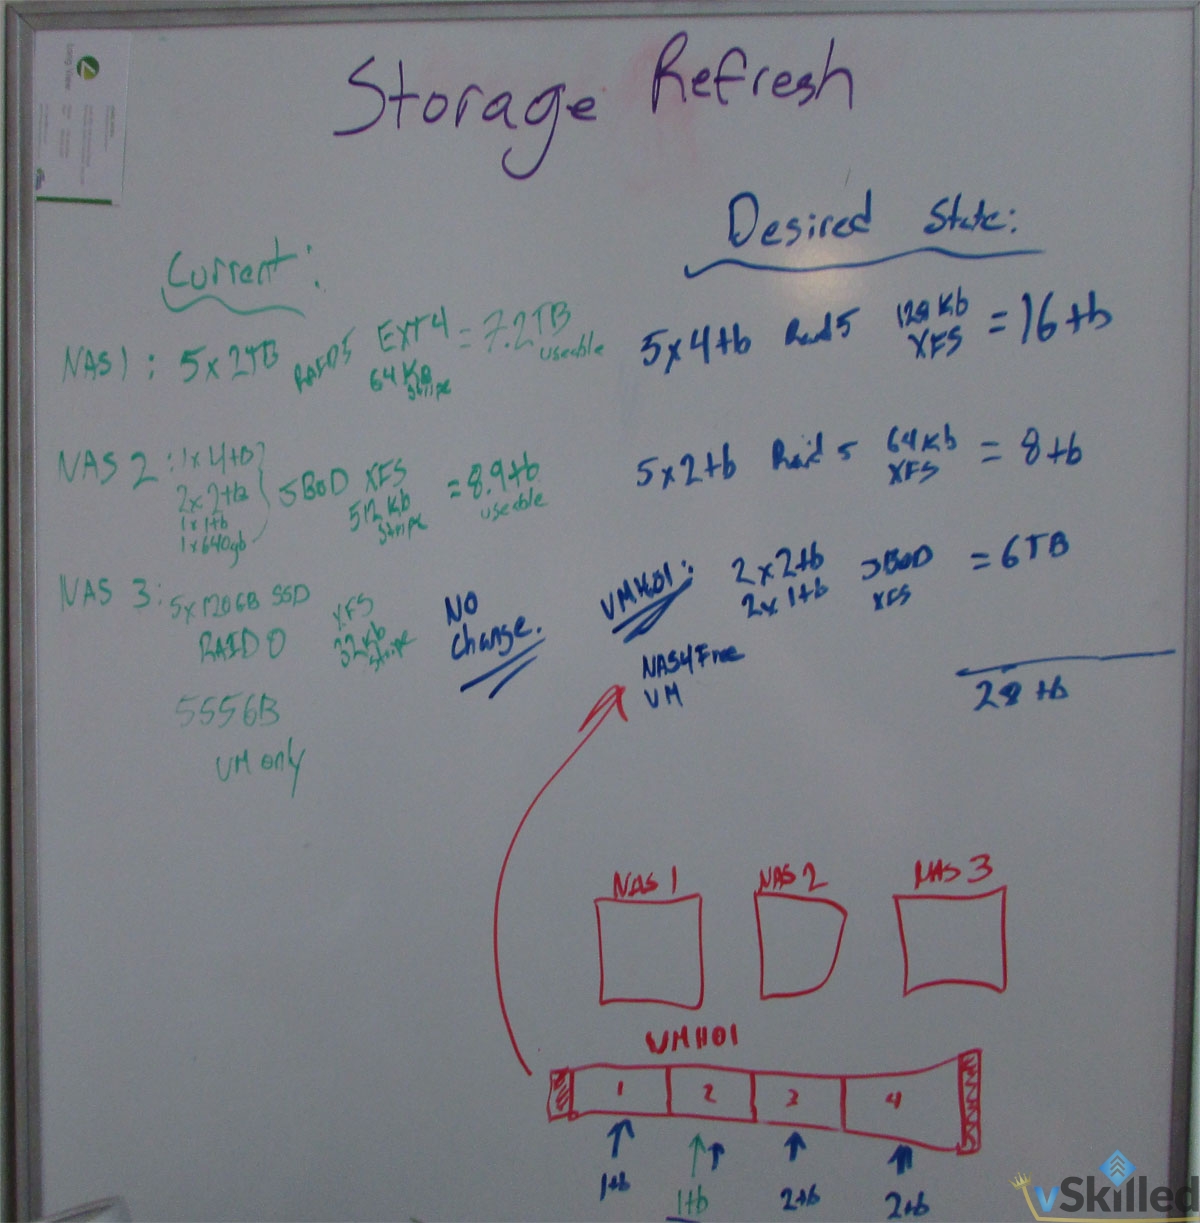 Storage Refresh
Current:
NAS 1: 5x2TB RAID5 EXT4 64KB Stripe = 7.2TB useable
NAS 2: 1x4tb
2x2tb
1x1tb
1x640gb
JBOD XFS 512Kb Stripe = 8.9tb useable
NAS 3: 5x120GB SSD
RAID 0 XFS 32Kb Stripe
555GB
VM only
No
change.
Desired State:
5x4tb Raid5 128Kb XFS = 16tb
5x2tb Raid 5 64Kb XFS = 8tb
VMH01: 2x2tb
2x1tb
JBOD XFS = 6TB
NAS4Free
VM
28tb
NAS 1 NAS 2 NAS 3
VMH01
1 2 3 4
1tb 1tb 2tb 2tb
Long View
vSkilled